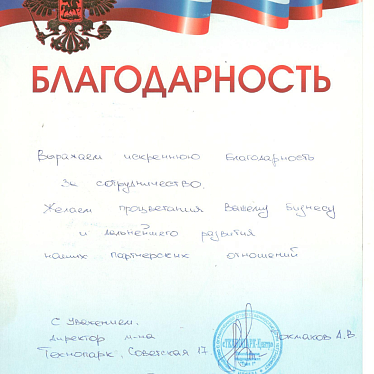 БЛАГОДАРНОСТЬ
Выражаем искреннюю благодарность
за сотрудничество.
Желаем процветания Вашему бизнесу
и дальнейшего развития
наших партнерских отношений
С Уважением,
директор м-на
Технопарк, Советская 17
А.В